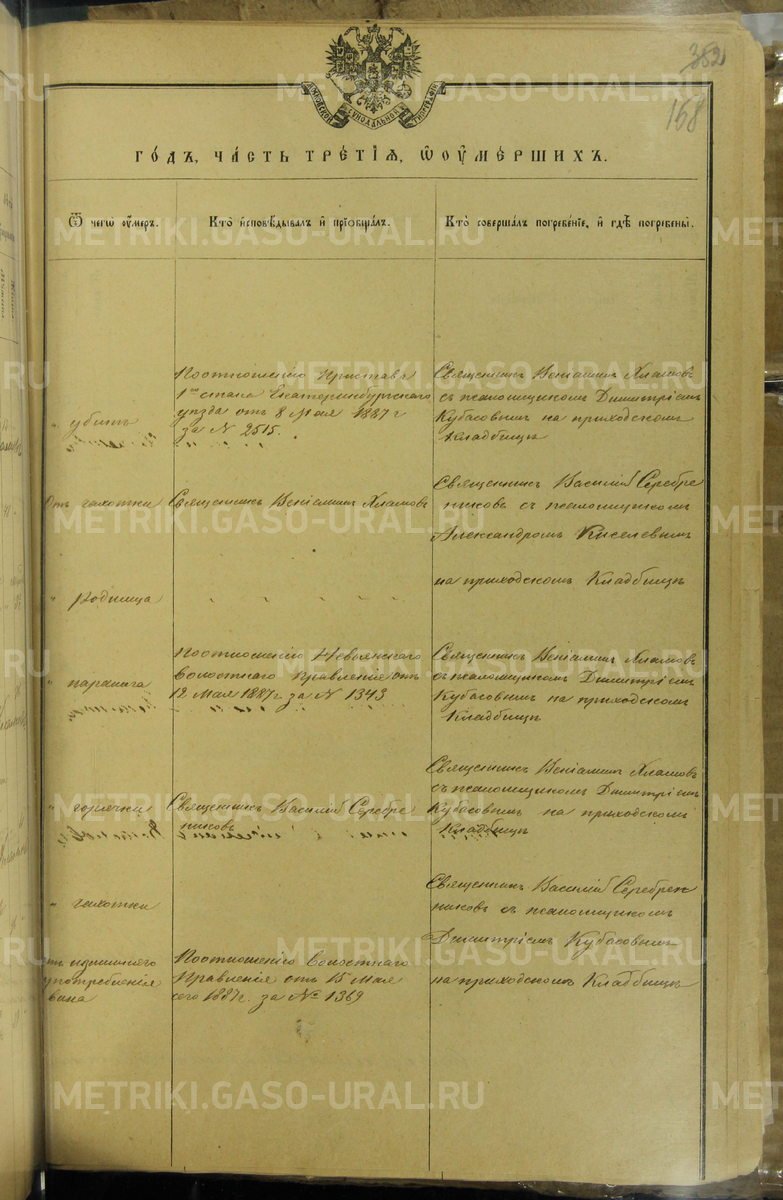 352
168
МОСКОВСКОЙ СѴНОДАЛЬНОЙ ТИПОГРАФІИ
ГО́ДЪ, ЧА́СТЬ ТРЕ́ТІѦ, Ѡ҆ ОУ҆МЕ́РШИХЪ.
Ѿ чегѡ̀ оу҆́меръ.
Кто̀ и҆сповѣ́дывалъ и҆ прїѡбща́лъ.
Кто̀ соверша́лъ погребе́нїе, и҆ гдѣ̀ погребены̀.
" убитъ
По отношенію Пристава
1го стана Екатеринбургскаго
уѣзда отъ 8 Мая 1887 г
за N 2515.
Священникъ Веніаминъ Хламовъ
съ псаломщикомъ Димитріемъ
Кубасовымъ на приходскомъ
кладбищѣ
Отъ чахотки
Священникъ Веніаминъ Хламовъ
Священникъ Василій Серебре
никовъ съ псаломщикомъ
Александромъ Киселевымъ
на приходскомъ Кладбищѣ
" родимца
" паралича
По отношенію Невьянскаго
Волостнаго Правленія отъ
12 Мая 1887 г. за N 1343
Священникъ Веніаминъ Хламовъ
съ псаломщикомъ Димитріемъ
Кубасовымъ на приходскомъ
Кладбищѣ
" горячки
Священникъ Василій Серебре
никовъ
Священникъ Веніаминъ Хламовъ
съ псаломщикомъ Димитріемъ
Кубасовымъ на приходскомъ
Кладбищѣ
" чахотки
Священникъ Василій Серебрен
никовъ съ псаломщикомъ
Димитріемъ Кубасовымъ
на приходскомъ Кладбищѣ
отъ излишняго
употребленія
вина
По отношенію Волостнаго
Правленія отъ 15 Мая
сего 1887 г. за № 1369
METRIKI.GASO-URAL.RU